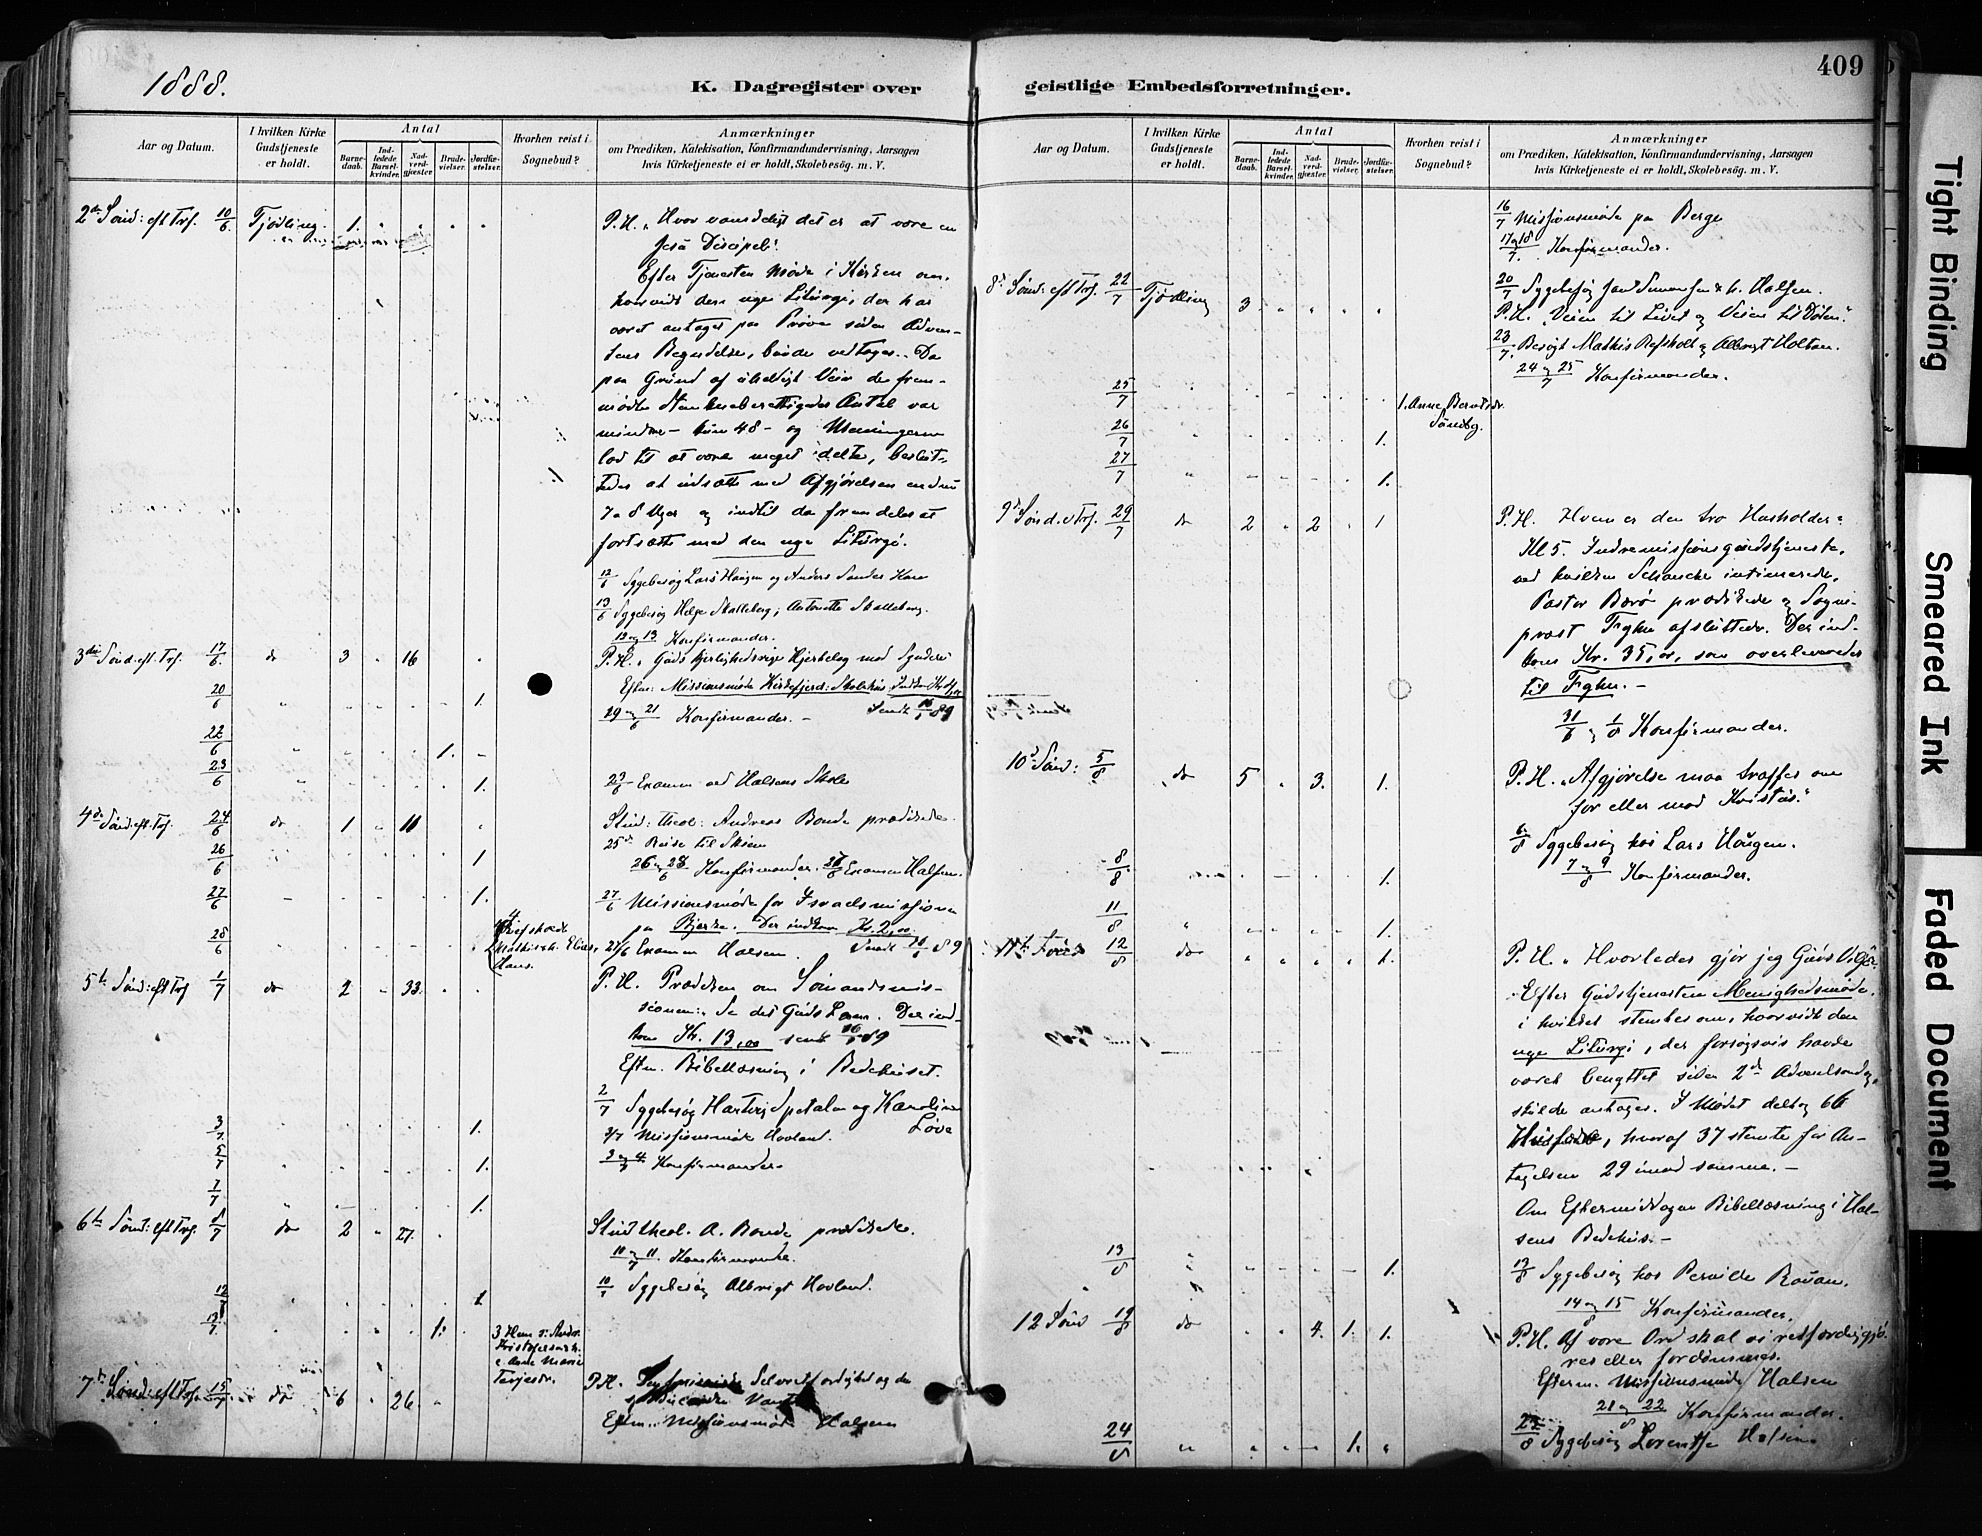 1888.
K. Dagregister over
geistlige Embedsforretninger.
409
Aar og Datum.
I hvilken Kirke Gudstjeneste er holdt.
Antal
Barnedaab.
Indledede Barselkvinder.
Nadverdgjester.
Brudevielser.
Jordfæstelser.
Hvorhen reist i Sognebud?
Anmærkninger
om Prædiken, Katekisation, Konfirmandundervisning, Aarsagen
hvis Kirketjeneste ei er holdt, Skolebesøg. m. V.
2den Sønd: eft Trf. 10/6 Tjødling. 1. " " " "
P.H. "Hvor vanskeligt det er at være en
Jesu Discipel".
Efter Tjenesten Møde i Kirken om,
hvorvidt den nye Liturgi, der har
været antaget paa Prøve siden Adven-
tens Begyndelse, burde vedtages. Da
paa Grund af uheldigt Veir de frem-
mødte Stemmeberettigedes Antal var
mindre - kun 48 - og Meningerne
lod til at være meget delte, beslut-
tedes at udsætte med Afgjørelsen endnu
7 a 8 Uger og indtil da fremdeles at
fortsætte med den nye Liturgi.
12/6 Sygebesøg Lars Haugen og Anders
13/6 Sygebesøg Helge Skalleberg, Antonette Skalleberg.
12 og 13/6 Konfirmander.
3die Sønd. eft. Trf. 17/6. do 3 " 16 "
P.H. "Guds kjærlighedsrige Hjertelag mod Syndere
Eftm: Missionsmøde
20/6 " " " " 1.
Sendt 16/1 89
og 21/6 Konfirmander. -
22/6 " " " " 1. -
23/6 " " " " 1.
23/6 Examen ved Halsens Skole
4de Sønd. eft. Trf. 24/6 do 1 " 11 "
Stud: theol: Andreas Bonde prædikede.
25de Reise til Skien
26/6 1
26 og 28/6 Konfirmander. Examen Halsen.
27/6 - 1.
27/6 Missionsmøde for Israelsmissionen
paa Bjerke. Der indkom Kr. 2,00.
28/6
Examen Halsen. Sendt 16/1 89
5te Sønd: eft Trf 1/7 do 2 " 33. "
P.H. Prædiken om Sømandsmis-
sionen: Se det Guds Lam. Der ind-
kom Kr. 13,00 sendt 16/1 89
Eftm. Bibellæsning i Bedehuset.
2/7 Sygebesøg Spetalen og Karoline
Løve
3/7. 1.
3/7 Missionsmøde Hovland.
5/7 1.
3 og 4/7 Konfirmander.
7/7 1.
6te Sønd: eft Trf. 8/7 do 2 " 27. "
Stud theol. A. Bonde prædikede.
10 og 11/7 Konfirmander.
10/7 Sygebesøg Albrigt Hovland.
12/7 1.
13/7. 1.
7de Sønd: eft Trf. 15/7 do 6 " 26. "
P.H. Selvretfærdighed og de
Eftm. Missionsmøde Halsen
Aar og Datum.
I hvilken Kirke Gudstjeneste er holdt.
Antal
Barnedaab.
Indledede Barselkvinder.
Nadverdgjester.
Brudevielser.
Jordfæstelser.
Hvorhen reist i Sognebud?
Anmærkninger
om Prædiken, Katekisation, Konfirmandundervisning, Aarsagen
hvis Kirketjeneste ei er holdt, Skolebesøg. m. V.
16/7 Missionsmøde paa Berge
17 og 18/7. Konfirmander.
20/7 Sygebesøg Halsen.
8de Sønd: eft Trf. 22/7 Tjødling 3 " " " "
P.H. "Veien til Livet og Veien til Døden".
23/7. Besøgt Mathis Refsholt og Albregt Holtan.
24 og 25/7 Konfirmander.
25/7 1. Anne
26/7 1.
27/7 1.
9de Sønd. e Trf. 29/7 do 2 " 2 " 1
P.H. Hvem er den tro Husholder?
Kl 5. Indremissionsgudstjeneste,
ved hvilken Schancke intimerede,
Pastor prædikede og Sogne-
præst afsluttede. Der ind-
kom Kr. 35,00, som overleveredes
til
og 1/8 Konfirmander.
10de Sønd: 5/8 do 5 " 3. " 1.
P.H. "Afgjørelse maa træffes om
for eller mod Kristus."
6/8 Sygebesøg hos Lars Haugen.
7 og 9/8 Konfirmander.
8/8. 1.
11/8 1.
11te 12/8 do " " " " 1.
P.H. "Hvorledes gjør jeg Guds
Efter Gudstjenesten Menighedsmøde,
i hvilket stemtes om, hvorvidt den
nye Liturgi, der forsøgsvis havde
været benyttet siden 2den Adventsøndag,
skulde antages. I Mødet deltog 66
Husfædre, hvoraf 37 stemte for An-
tagelsen 29 imod samme. -
Om Eftermiddagen Bibellæsning i Hal-
sens Bedehus. -
13/8 1.
13/8 Sygebesøg hos Pernille Rauan.
14 og 15/8 Konfirmander.
12 Sønd 19/8 do " " 4. 1. 1.
P.H. Af vore Ord skal vi retfærdiggjø-
res eller fordømmes.
Efterm. Missionsmøde Halsen
21 og 22/8 Konfirmander.
24/8 " " " 1. "
Sygebesøg Halsen.
Tight Binding
Smeared Ink
Faded Document